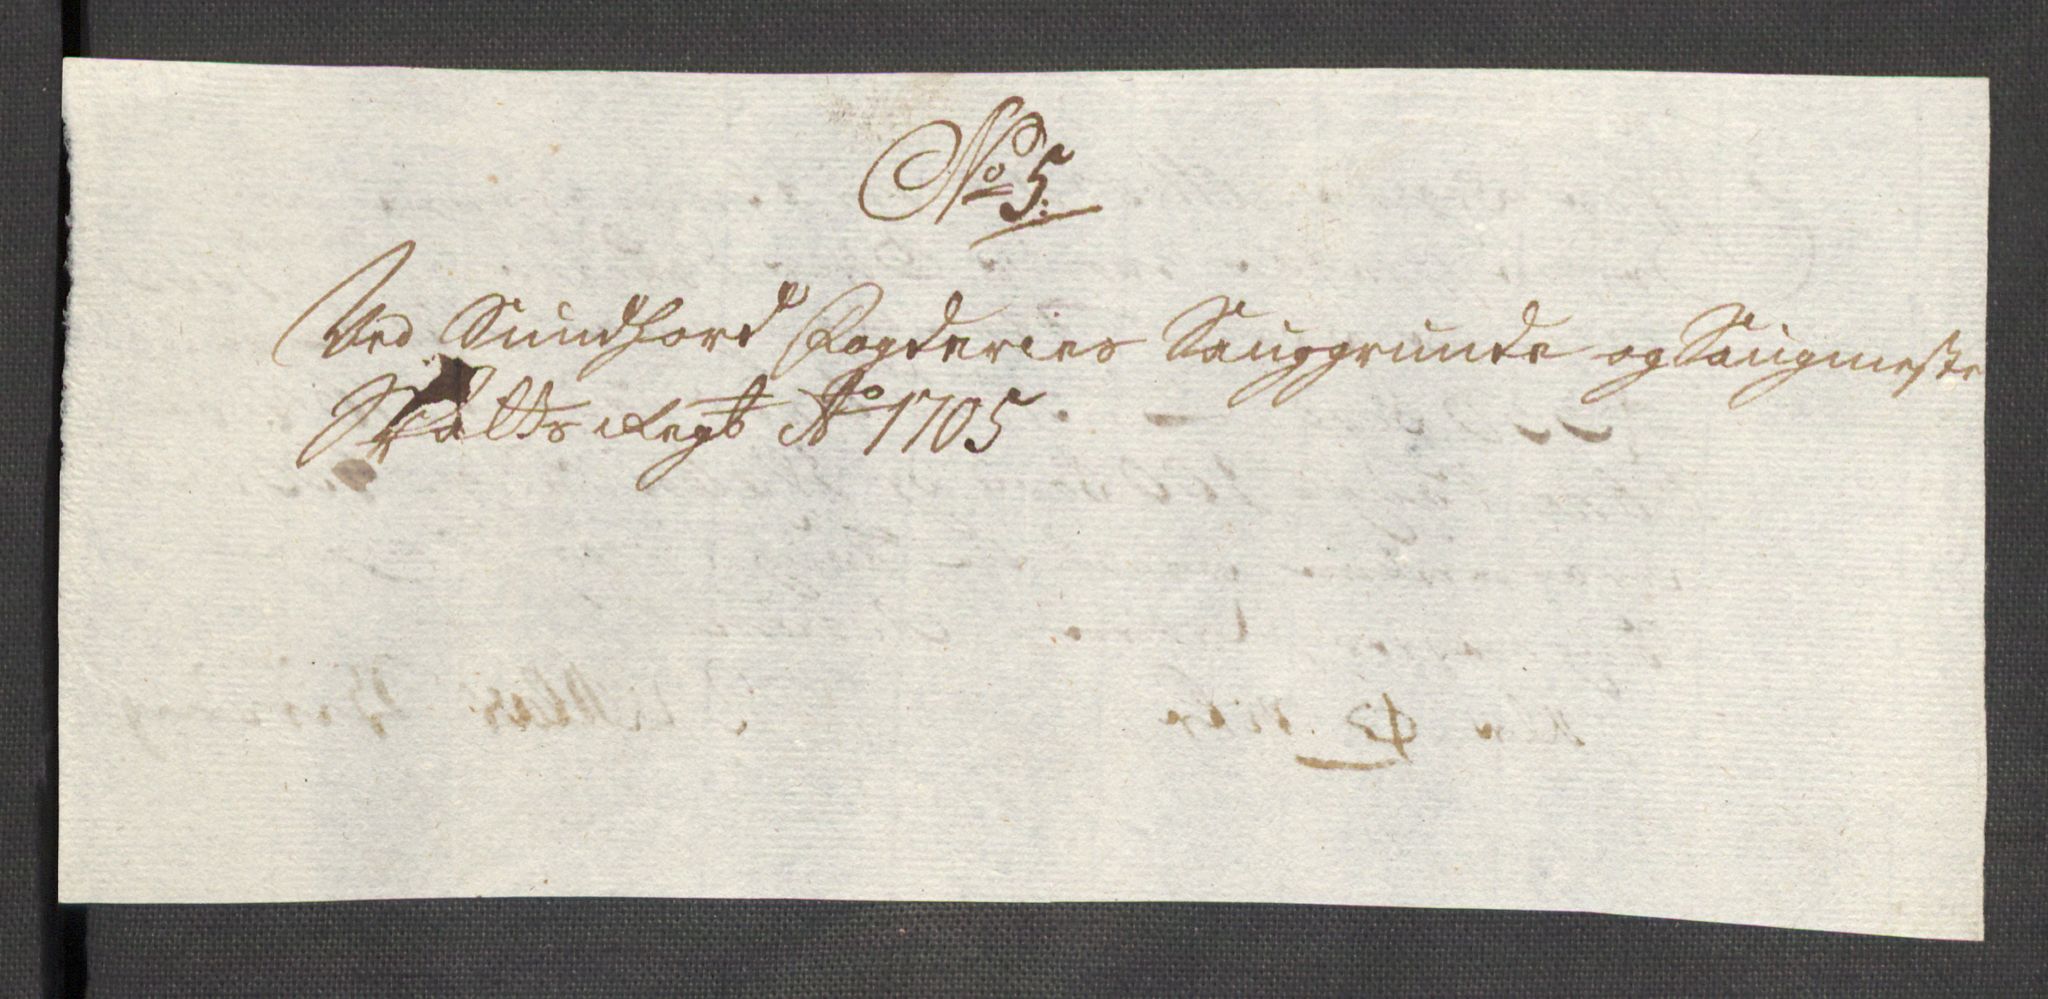 No 5.
Ved Sundhord Fogderies Sauggrunde og Saugmeste
Skatts Regb Ao 1705